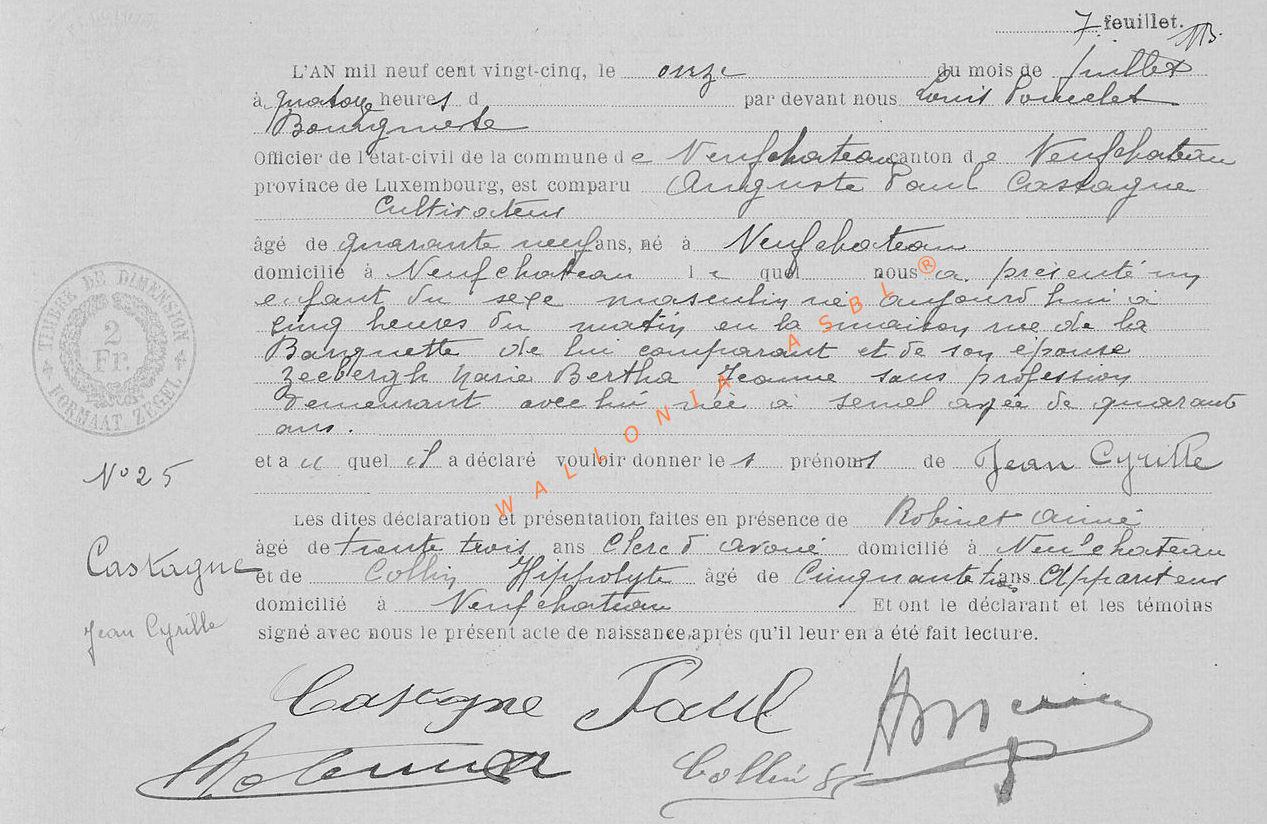 7 feuillet.
L'AN mil neuf cent vingt-cinq, le onze du mois de juillet
à quatorze heures d par devant nous Louis Poncelet
Bourgmestre
Officier de l'état-civil de la commune de Neufchateau canton de Neufchateau
province de Luxembourg, est comparu Auguste Paul Castagne
Cultivateur
âgé de quarante neuf ans, né à Neufchateau
domicilié à Neufchateau lequel nous a présenté un
enfant du sexe masculin né aujourd'hui à
cinq heures du matin en la maison rue de la
Banquette de lui comparant et de son épouse
Zeebergh Marie Bertha Jeanne sans profession
demeurant avec lui née à Semel agée de quarante
ans.
et auquel il a déclaré vouloir donner les prénoms de Jean Cyrille
Les dites déclaration et présentation faites en présence de Robinet Aimé
âgé de trente trois ans Clerc d'avoué domicilié à Neufchateau
et de Collin Hippolyte âgé de Cinquante trois ans Appariteur
domicilié à Neufchateau Et ont le déclarant et les témoins
signé avec nous le présent acte de naissance, après qu'il leur en a été fait lecture.
Castagne Paul
Collin
N° 25
Castagne
Jean Cyrille
TIMBRE DE DIMENSION
2
Fr.
FORMAAT ZEGEL
WALLONIA ASBL ®